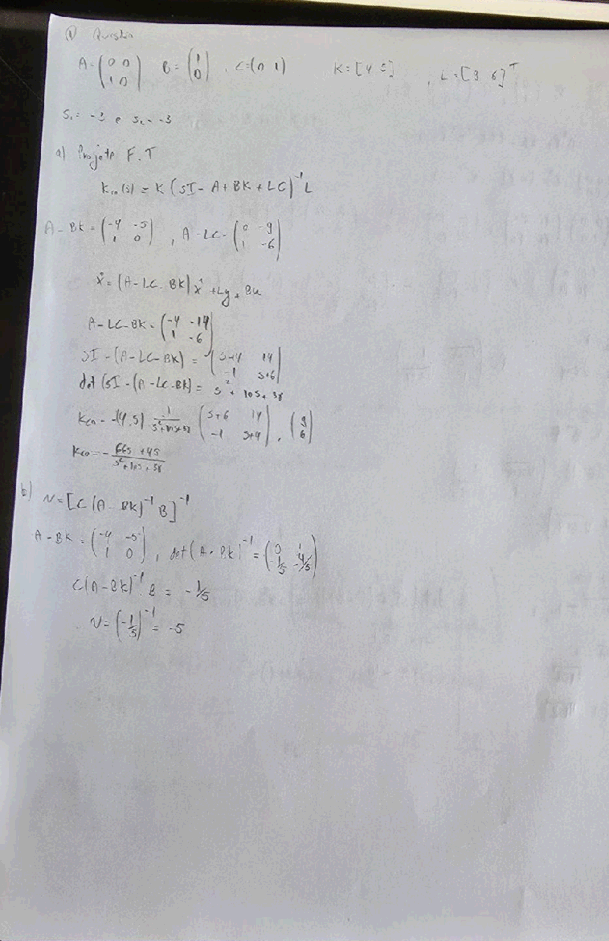 ① Questão
A = (0 0; 1 0) B = (1; 0) , C = (0 1) K = [4 5] , L = [9 6]ᵀ
S₁ = -3 e S₂ = -3
a) Projeto F.T
Kco(s) = K (sI - A + BK + LC)⁻¹ L
A - BK = (-4 -5; 1 0) , A - LC = (0 -9; 1 -6)
x̂ = (A - LC - BK) x̂ + Ly + Bu
A - LC - BK = (-4 -14; 1 -6)
sI - (A - LC - BK) = (s+4 14; -1 s+6)
det (sI - (A - LC - BK)) = s² + 10s + 38
Kco = -(4 5) 1/(s²+10s+38) (s+6 14; -1 s+4) . (9; 6)
Kco = - (66s + 45)/(s² + 10s + 38)
b) N = [C (A - BK)⁻¹ B]⁻¹
A - BK = (-4 -5; 1 0) , det (A - BK)⁻¹ = (0 1; 1/5 -4/5)
C(A - BK)⁻¹ B = -1/5
N = (-1/5)⁻¹ = -5